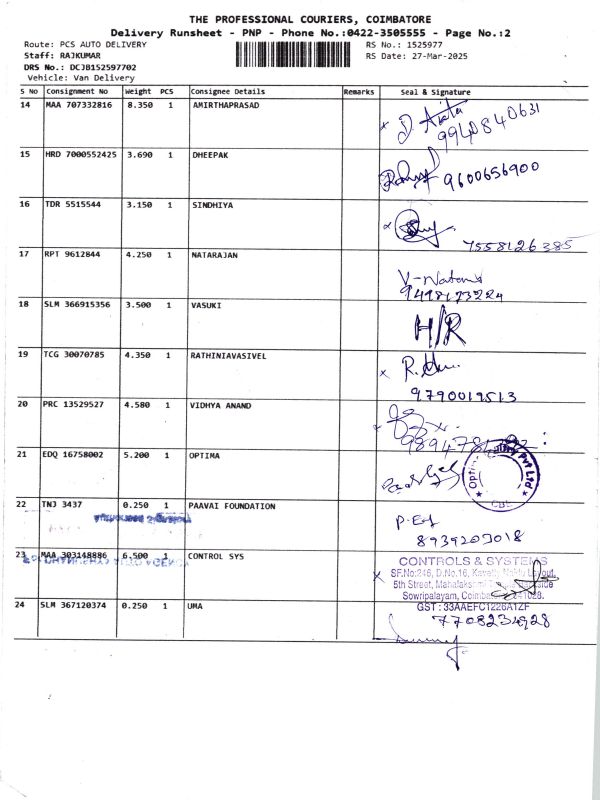 THE PROFESSIONAL COURIERS, COIMBATORE
Delivery Runsheet - PNP - Phone No.:0422-3505555 - Page No.:2
Route: PCS AUTO DELIVERY RS No.: 1525977
Staff: RAJKUMAR RS Date: 27-Mar-2025
DRS No.: DCJB152597702
Vehicle: Van Delivery
S No Consignment No Weight PCS Consignee Details Remarks Seal & Signature
14 MAA 707332816 8.350 1 AMIRTHAPRASAD
9940840631
15 HRD 7000552425 3.690 1 DHEEPAK
9600656900
16 TDR 5515544 3.150 1 SINDHIYA
7558126385
17 RPT 9612844 4.250 1 NATARAJAN
18 SLM 366915356 3.500 1 VASUKI
H/R
19 TCG 30070785 4.350 1 RATHINIAVASIVEL
9790019513
20 PRC 13529527 4.580 1 VIDHYA ANAND
21 EDQ 16758002 5.200 1 OPTIMA
Pvt Ltd
CBE
22 TNJ 3437 0.250 1 PAAVAI FOUNDATION
8939203018
23 MAA 303148886 6.500 1 CONTROL SYS
CONTROLS & SYSTEMS
SF.No:246, D.No.16, Layout,
5th Street,
Sowripalayam,
GST : 33AAEFC1226A1ZF
24 SLM 367120374 0.250 1 UMA
7708234928